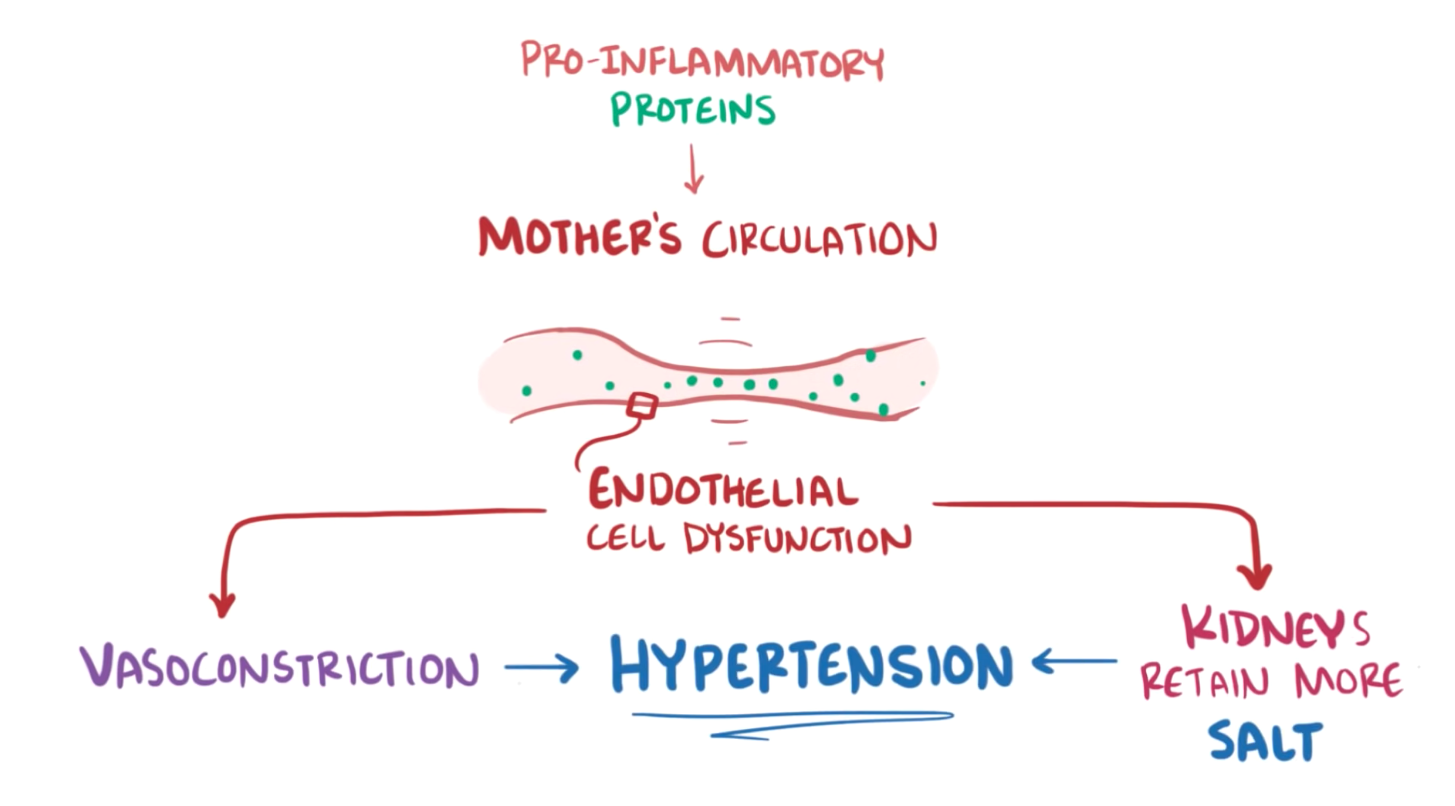 PRO-INFLAMMATORY
PROTEINS
MOTHER'S CIRCULATION
ENDOTHELIAL
CELL DYSFUNCTION
VASOCONSTRICTION
HYPERTENSION
KIDNEYS
RETAIN MORE
SALT